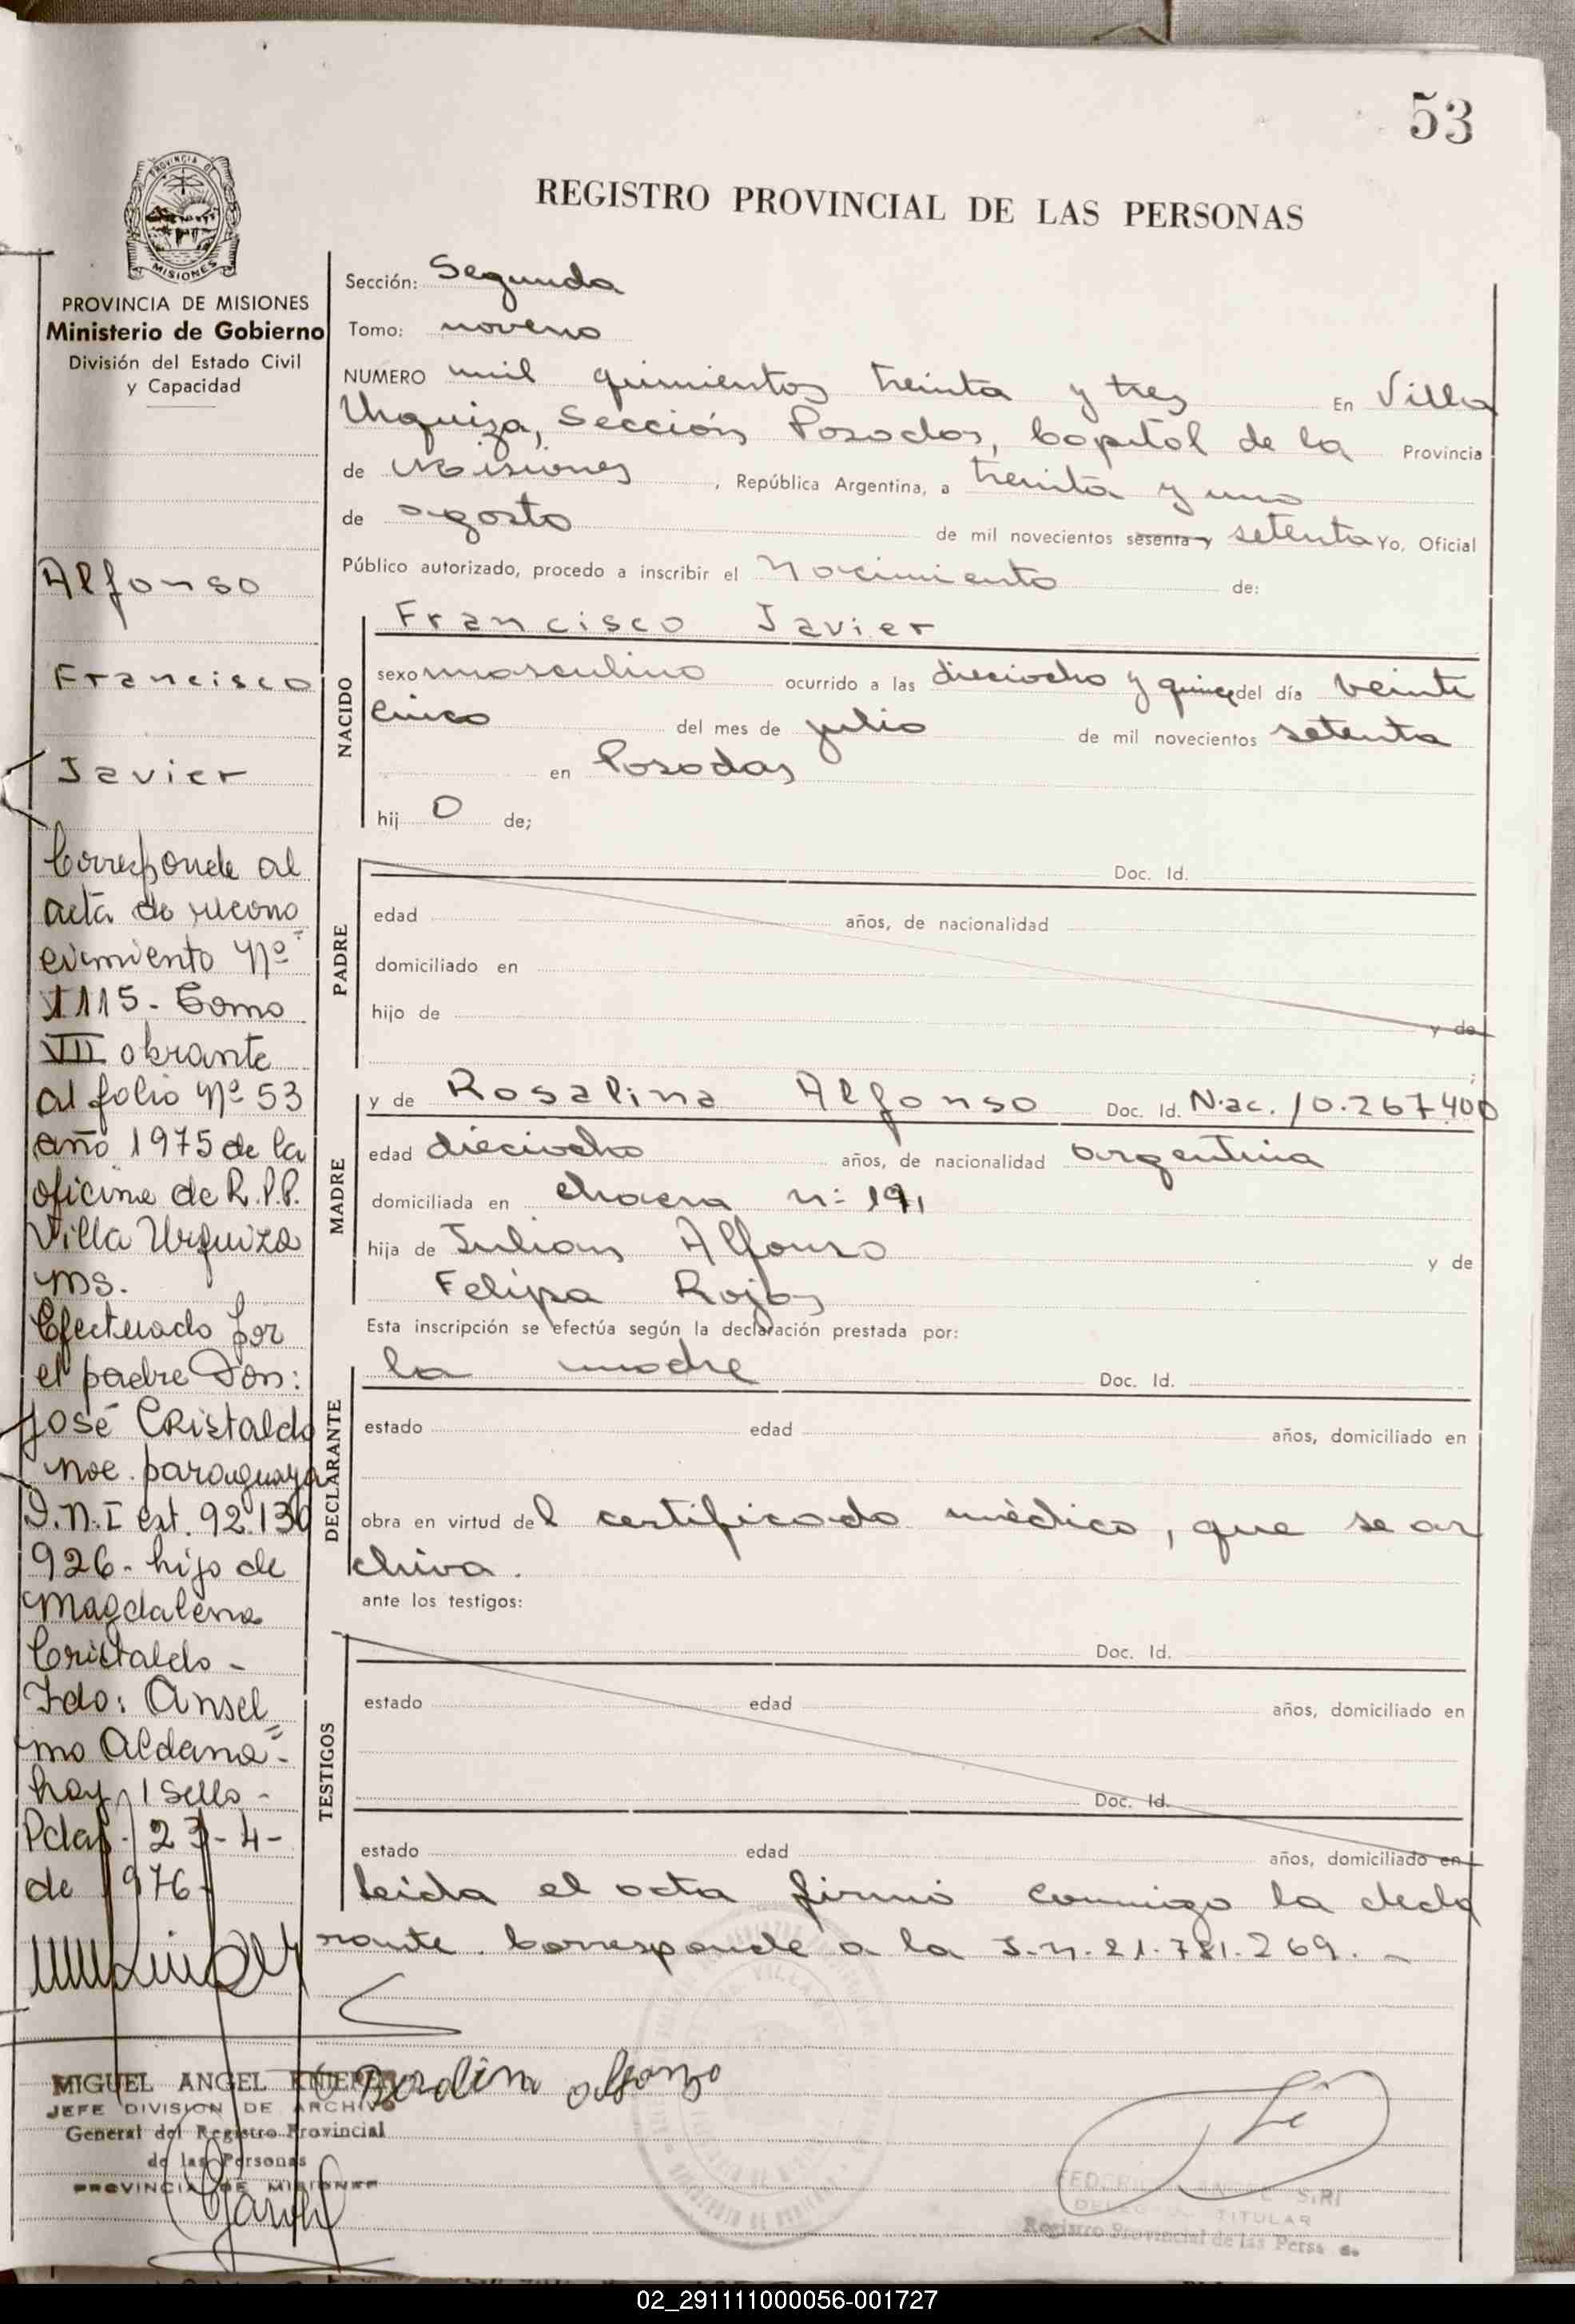 53
REGISTRO PROVINCIAL DE LAS PERSONAS
PROVINCIA DE
MISIONES
PROVINCIA DE MISIONES
Ministerio de Gobierno
División del Estado Civil
y Capacidad
Alfonso
Francisco
Javier
Corresponde al
acta de recono
cimiento Nº
1115 - Tomo
VII obrante
al folio Nº 53
año 1975 de la
oficina de R.P.P.
Villa Urquiza
Ms.
Efectuado por
el padre Don:
José Cristaldo
Nac. paraguaya
D.N.I Ext. 92.130
926 - hijo de
Magdalena
Cristaldo -
Fdo: Ansel
mo Aldana -
hay 1 sello -
Pdas - 23-4-
de 1976
Sección: Segunda
Tomo: noveno
NUMERO mil quinientos treinta y tres En Villa
Urquiza, Sección Posadas, Capital de la Provincia
de Misiones, República Argentina, a treinta y uno
de agosto de mil novecientos sesenta y setenta Yo, Oficial
Público autorizado, procedo a inscribir el Nacimiento de:
NACIDO
Francisco Javier
sexo masculino ocurrido a las dieciocho y quince del día veinti
cinco del mes de julio de mil novecientos setenta
en Posadas
hij o de;
PADRE
Doc. Id.
edad años, de nacionalidad
domiciliado en
hijo de y de
;
MADRE
y de Rosalina Alfonso Doc. Id. Nac. 10.267.400
edad dieciocho años, de nacionalidad argentina
domiciliada en chacra n: 191
hija de Julian Alfonso y de
Felipa Rojas
Esta inscripción se efectúa según la declaración prestada por:
DECLARANTE
la madre Doc. Id.
estado edad años, domiciliado en
obra en virtud del certificado médico, que se ar
chiva.
ante los testigos:
TESTIGOS
Doc. Id.
estado edad años, domiciliado en
Doc. Id.
estado edad años, domiciliado en
Leída el acta firmó conmigo la decla
rante. Corresponde a la I.N. 21.781.269. -
alfonzo
MIGUEL ANGEL KNIEPER
JEFE DIVISION DE ARCHIVO
General del Registro Provincial
de las Personas
PROVINCIA DE MISIONES
SIRI
TITULAR
Registro Provincial de las Pers
02_291111000056-001727